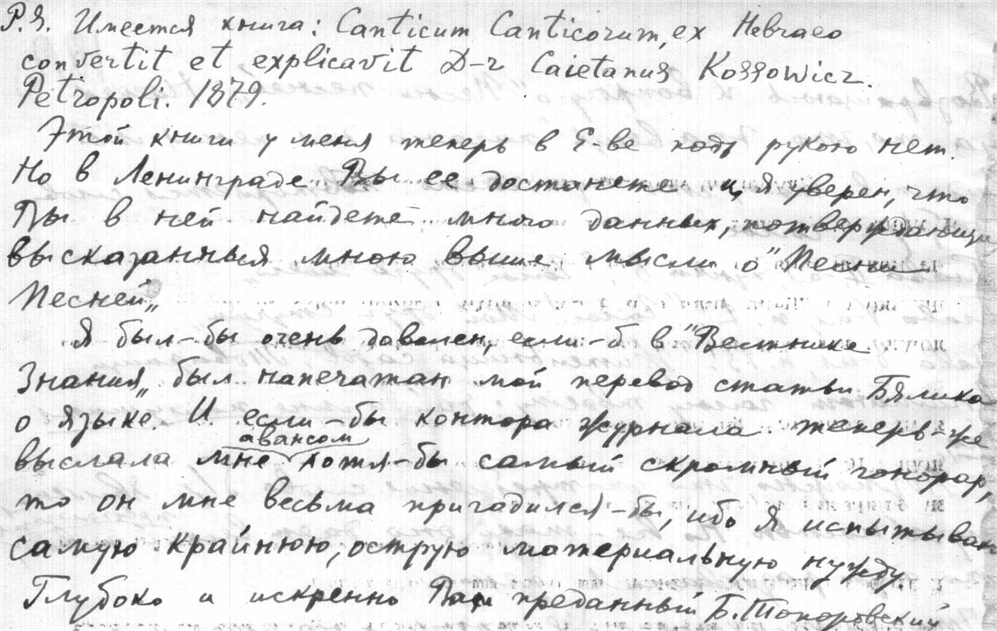 P.S. Имеется книга: Canticum Canticorum, ex Hebraeo
convertit et explicavit D-r Caietanus Kossowicz.
Petropoli. 1879.
Этой книги у меня теперь в Е-ве под рукою нет.
Но в Ленинграде Вы ее достанете и, я уверен, что
Вы в ней найдете много данных, потверждающих
высказанныя мною выше мысли о "Песни
Песней„
Я был-бы очень доволен, если-б в "Вестнике
Знания„ был напечатан мой перевод статьи Бялика
о языке. И если-бы контора журнала теперь-же
выслала мне авансом хотя-бы самый скромный гонорар,
то он мне весьма пригодился-бы, ибо я испытываю
самую крайнюю, острую материальную нужду.
Глубоко и искренно Вам преданный Б. Топоровский